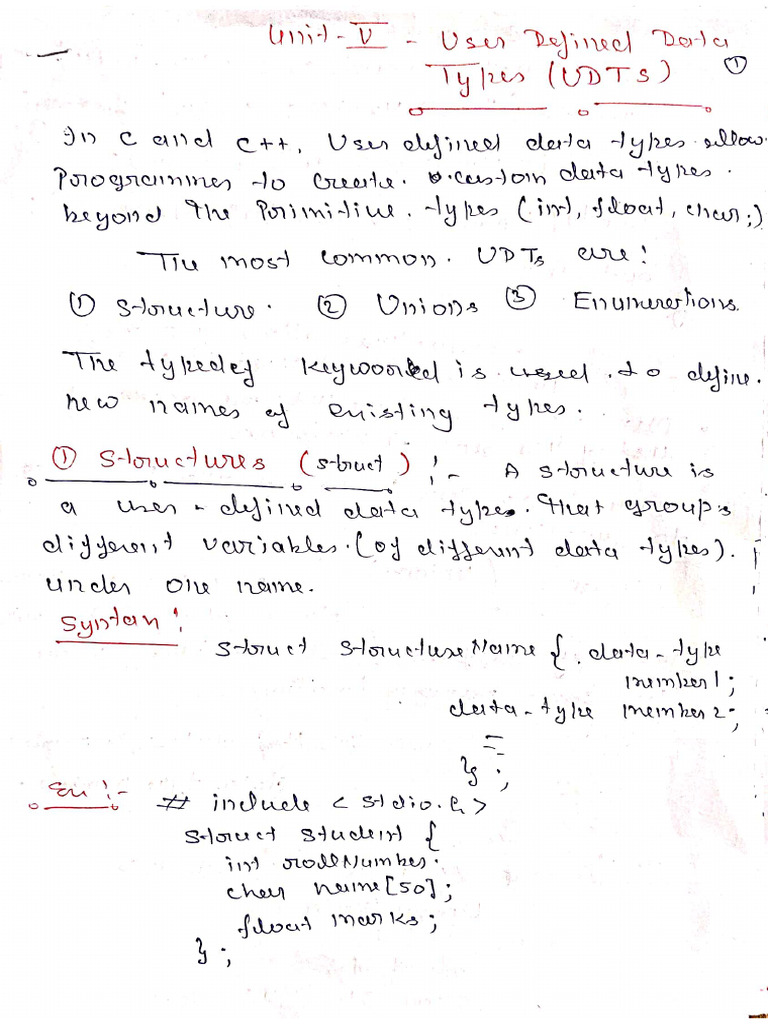 Unit-V - User Defined Data
Types (UDTs) ①
In C and C++, User defined data types allow
Programmes to create custom data types
beyond the Primitive types (int, float, char;)
The most common UDTs are!
① Structure. ② Unions ③ Enumerations.
The typedef keyword is used to define.
new names of existing types.
① Structures (struct) :- A structure is
a user-defined data types. that groups
different variables (of different data types).
under one name.
Syntax:
struct StructureName { data-type
member1;
data-type member2;
};
Ex:-
# include <stdio.h>
struct student {
int rollNumber.
char name[50];
float marks;
};